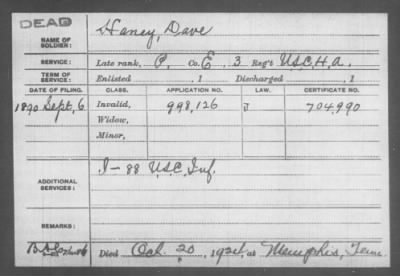 DEAD
NAME OF SOLDIER: Haney, Dave
SERVICE: Late rank, P, Co. E, 3 Reg't U.S.C.H.A.
TERM OF SERVICE: Enlisted , 1 Discharged , 1
DATE OF FILING. CLASS. APPLICATION NO. LAW. CERTIFICATE NO.
1890 Sept, 6 Invalid, 998,126 J 704,990
Widow,
Minor,
ADDITIONAL SERVICES: I-88 U.S.C. Inf.
REMARKS:
Died Oct. 20, 1924, at Memphis, Tenn.